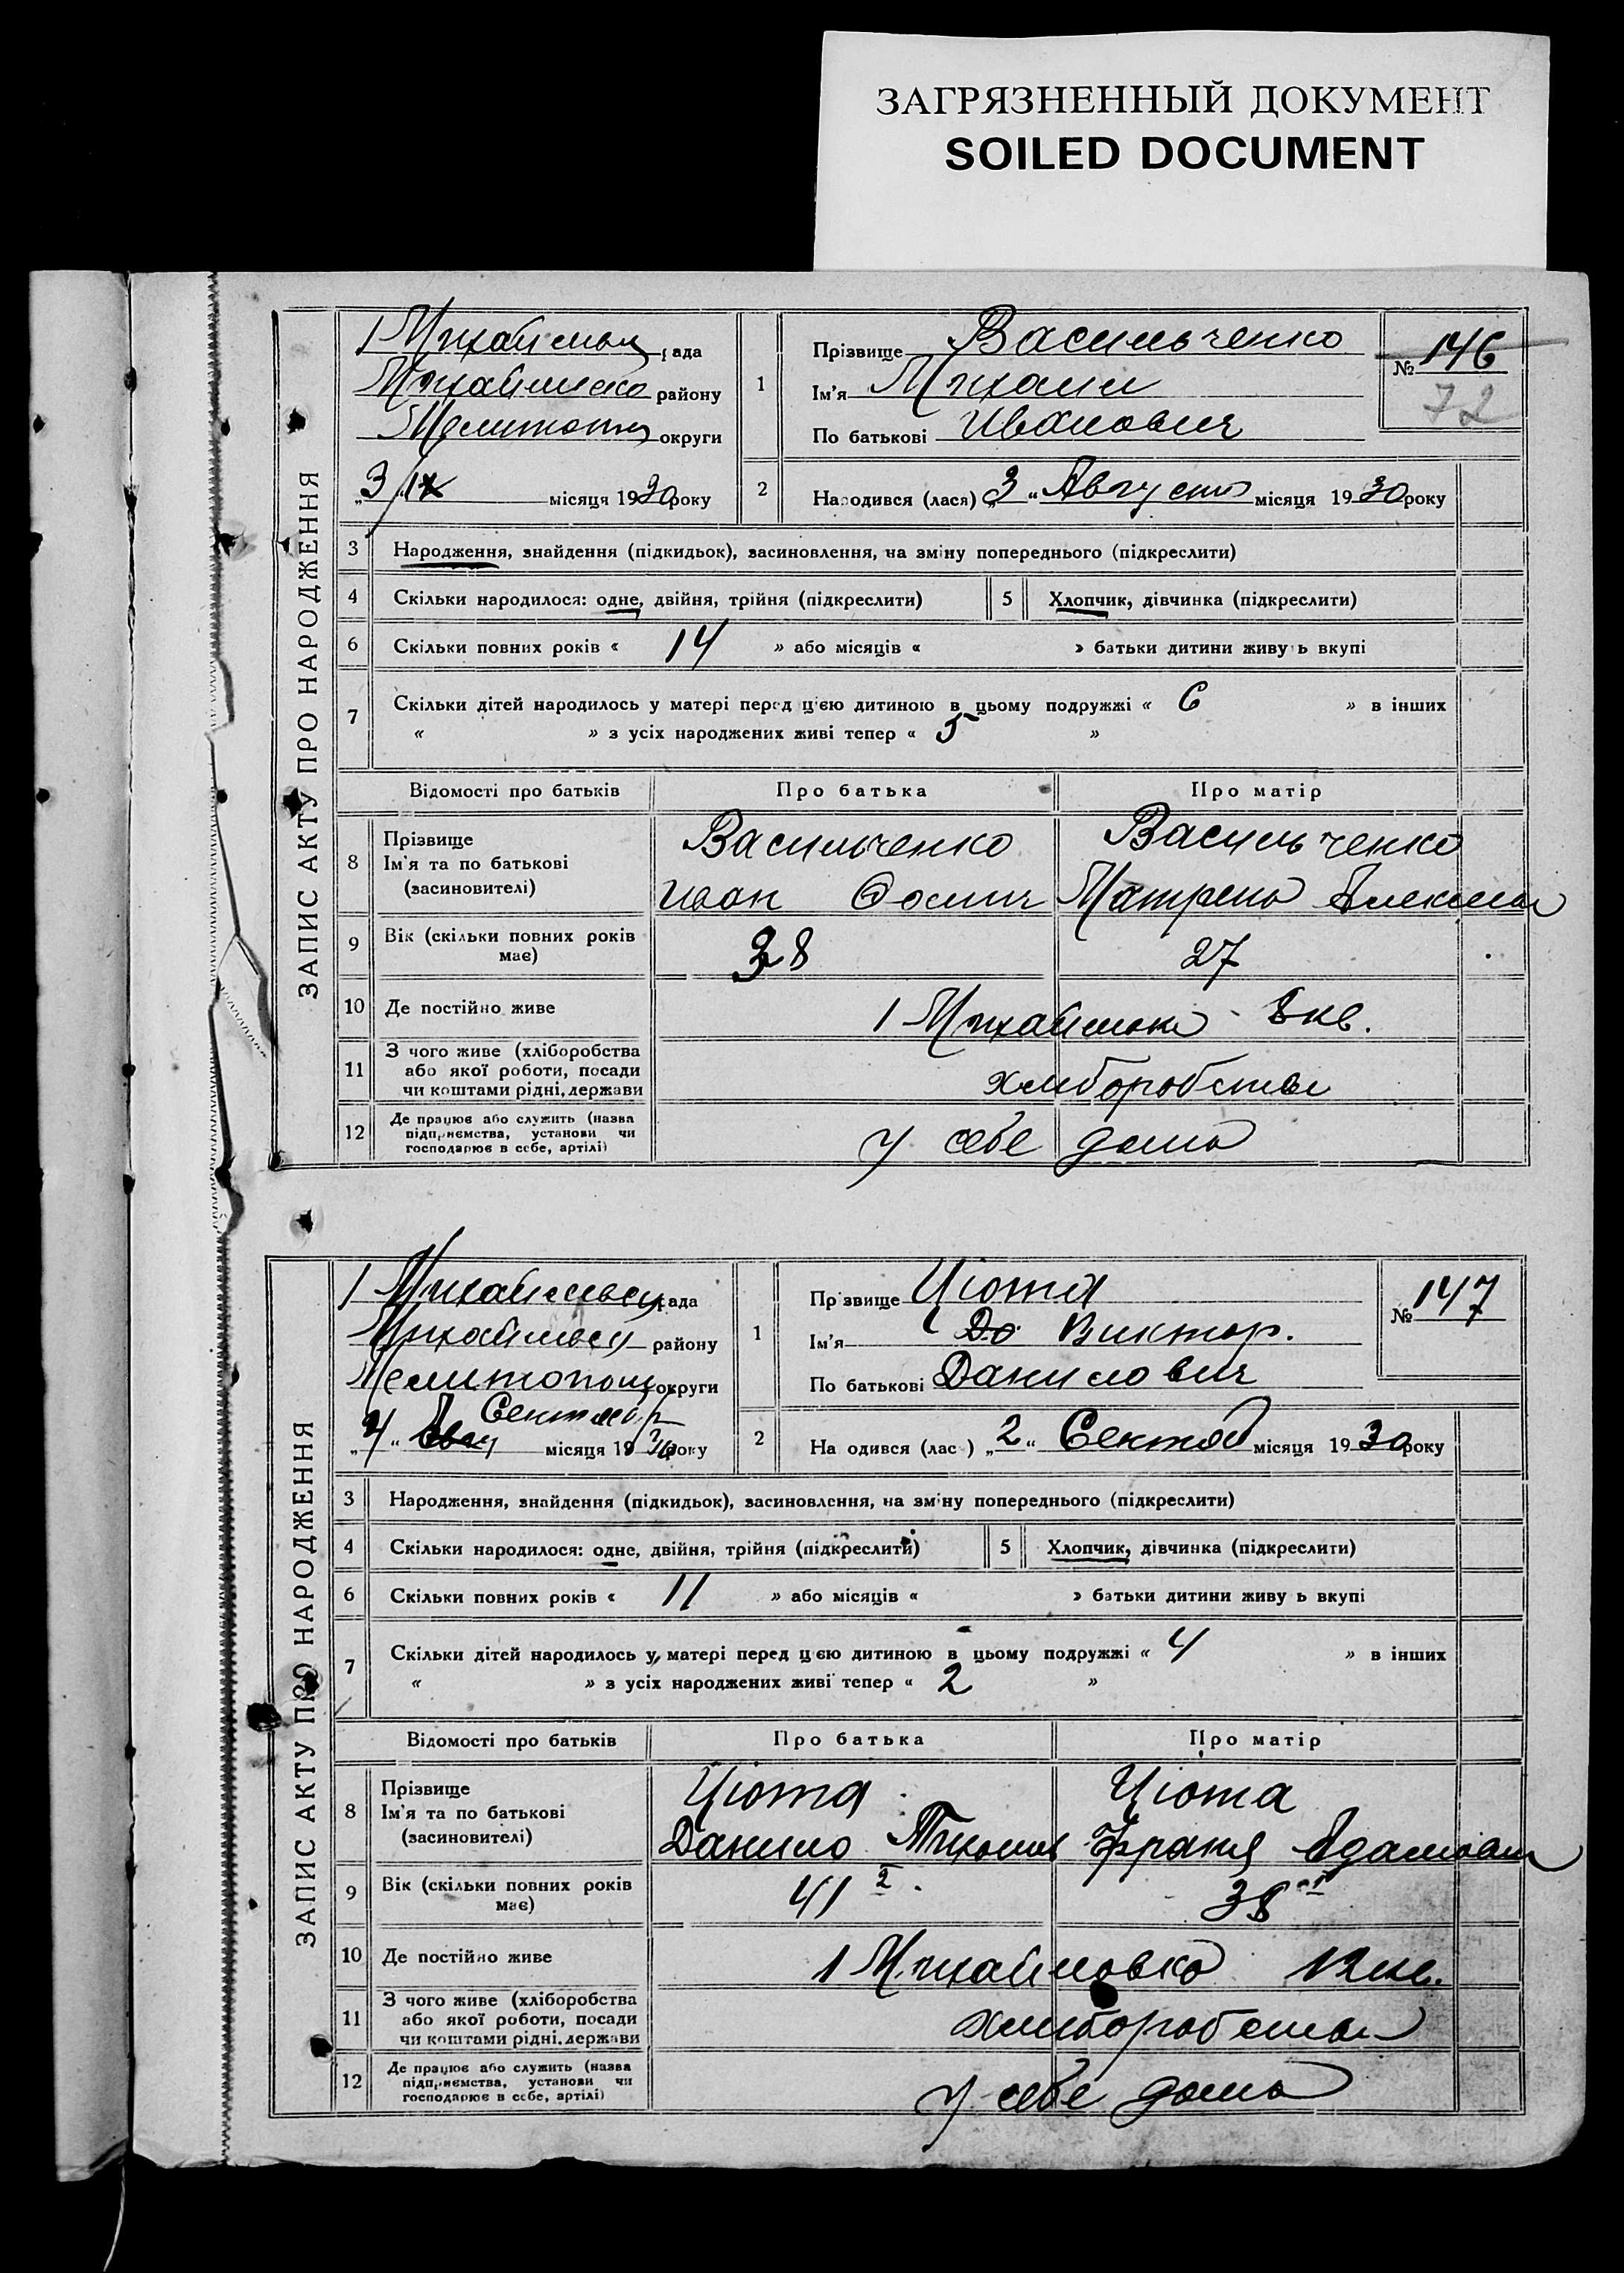 ЗАГРЯЗНЕННЫЙ ДОКУМЕНТ
SOILED DOCUMENT
ЗАПИС АКТУ ПРО НАРОДЖЕННЯ
рада
району
округи
3/IX місяця 1930 року
1
Прізвище Васильченко
Ім'я Михаил
По батькові Иванович
№ 146
72
2
Народився (лася) „3“ Августа місяця 1930 року
3 Народження, знайдення (підкидьок), засиновлення, на зміну попереднього (підкреслити)
4 Скільки народилося: одне, двійня, трійня (підкреслити) 5 Хлопчик, дівчинка (підкреслити)
6 Скільки повних років « 14 » або місяців « » батьки дитини живуть вкупі
7 Скільки дітей народилось у матері перед цією дитиною в цьому подружжі « 6 » в інших
« » з усіх народжених живі тепер « 5 »
Відомості про батьків Про батька Про матір
8 Прізвище
Ім'я та по батькові
(засновителі)
Васильченко Васильченко
Иван Матрена
9 Вік (скільки повних років має) 38 27
10 Де постійно живе 1 8 кв.
11 З чого живе (хліборобства
або якої роботи, посади
чи коштами рідні, держави
хлиборобства
12 Де працює або служить (назва
підприємства, установи чи
господарює в себе, артілі)
у себе дома
ЗАПИС АКТУ ПРО НАРОДЖЕННЯ
рада
району
округи
„4“ місяця 1930 року
1
Прізвище Цюта
Ім'я Виктор.
По батькові Данилович
№ 147
2
На одився (лас ) „2“ Сентяб місяця 1930 року
3 Народження, знайдення (підкидьок), засиновлення, на зміну попереднього (підкреслити)
4 Скільки народилося: одне, двійня, трійня (підкреслити) 5 Хлопчик, дівчинка (підкреслити)
6 Скільки повних років « 11 » або місяців « » батьки дитини живу ь вкупі
7 Скільки дітей народилось у матері перед цією дитиною в цьому подружжі « 4 » в інших
« » з усіх народжених живі тепер « 2 »
Відомості про батьків Про батька Про матір
8 Прізвище
Ім'я та по батькові
(засиновителі)
Цюта Цюта
Данило
9 Вік (скільки повних років має) 41 38
10 Де постійно живе 1 Михайловка 12 кв.
11 З чого живе (хліборобства
або якої роботи, посади
чи коштами рідні, держави
хлиборобства
12 Де працює або служить (назва
підприємства, установи чи
господарює в себе, артілі)
у себе дома